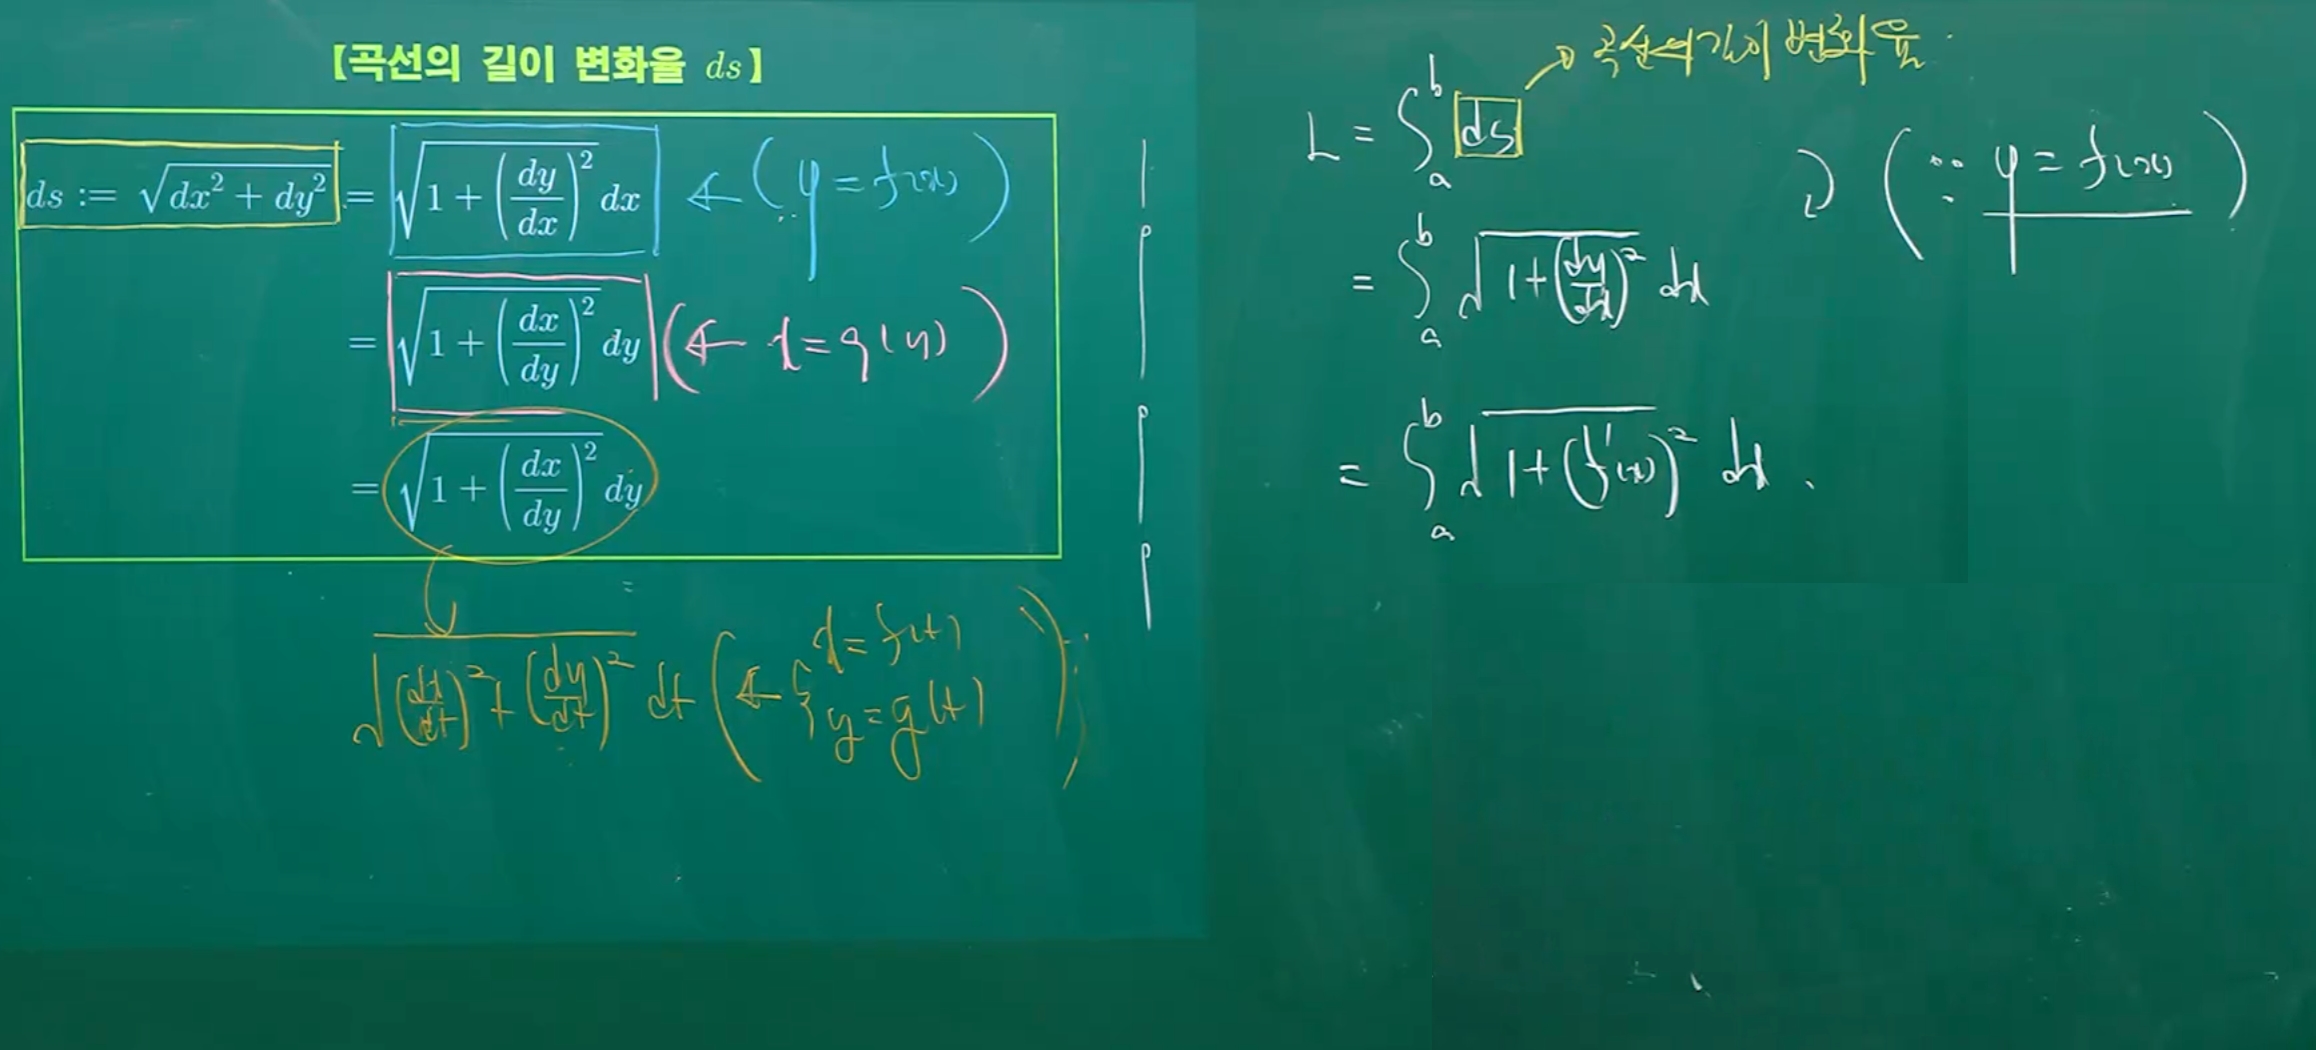 【곡선의 길이 변화율 ds】
ds := √(dx² + dy²) = √(1 + (dy/dx)²) dx ← (y = f(x))
= √(1 + (dx/dy)²) dy (← x = g(y))
= √(1 + (dx/dy)²) dy
√((dx/dt)² + (dy/dt)²) dt (← { x = f(t)
y = g(t) )
→ 곡선의 길이 변화율
L = ∫ₐᵇ ds
(∵ y = f(x))
= ∫ₐᵇ √(1 + (dy/dx)²) dx
= ∫ₐᵇ √(1 + (f'(x))²) dx .